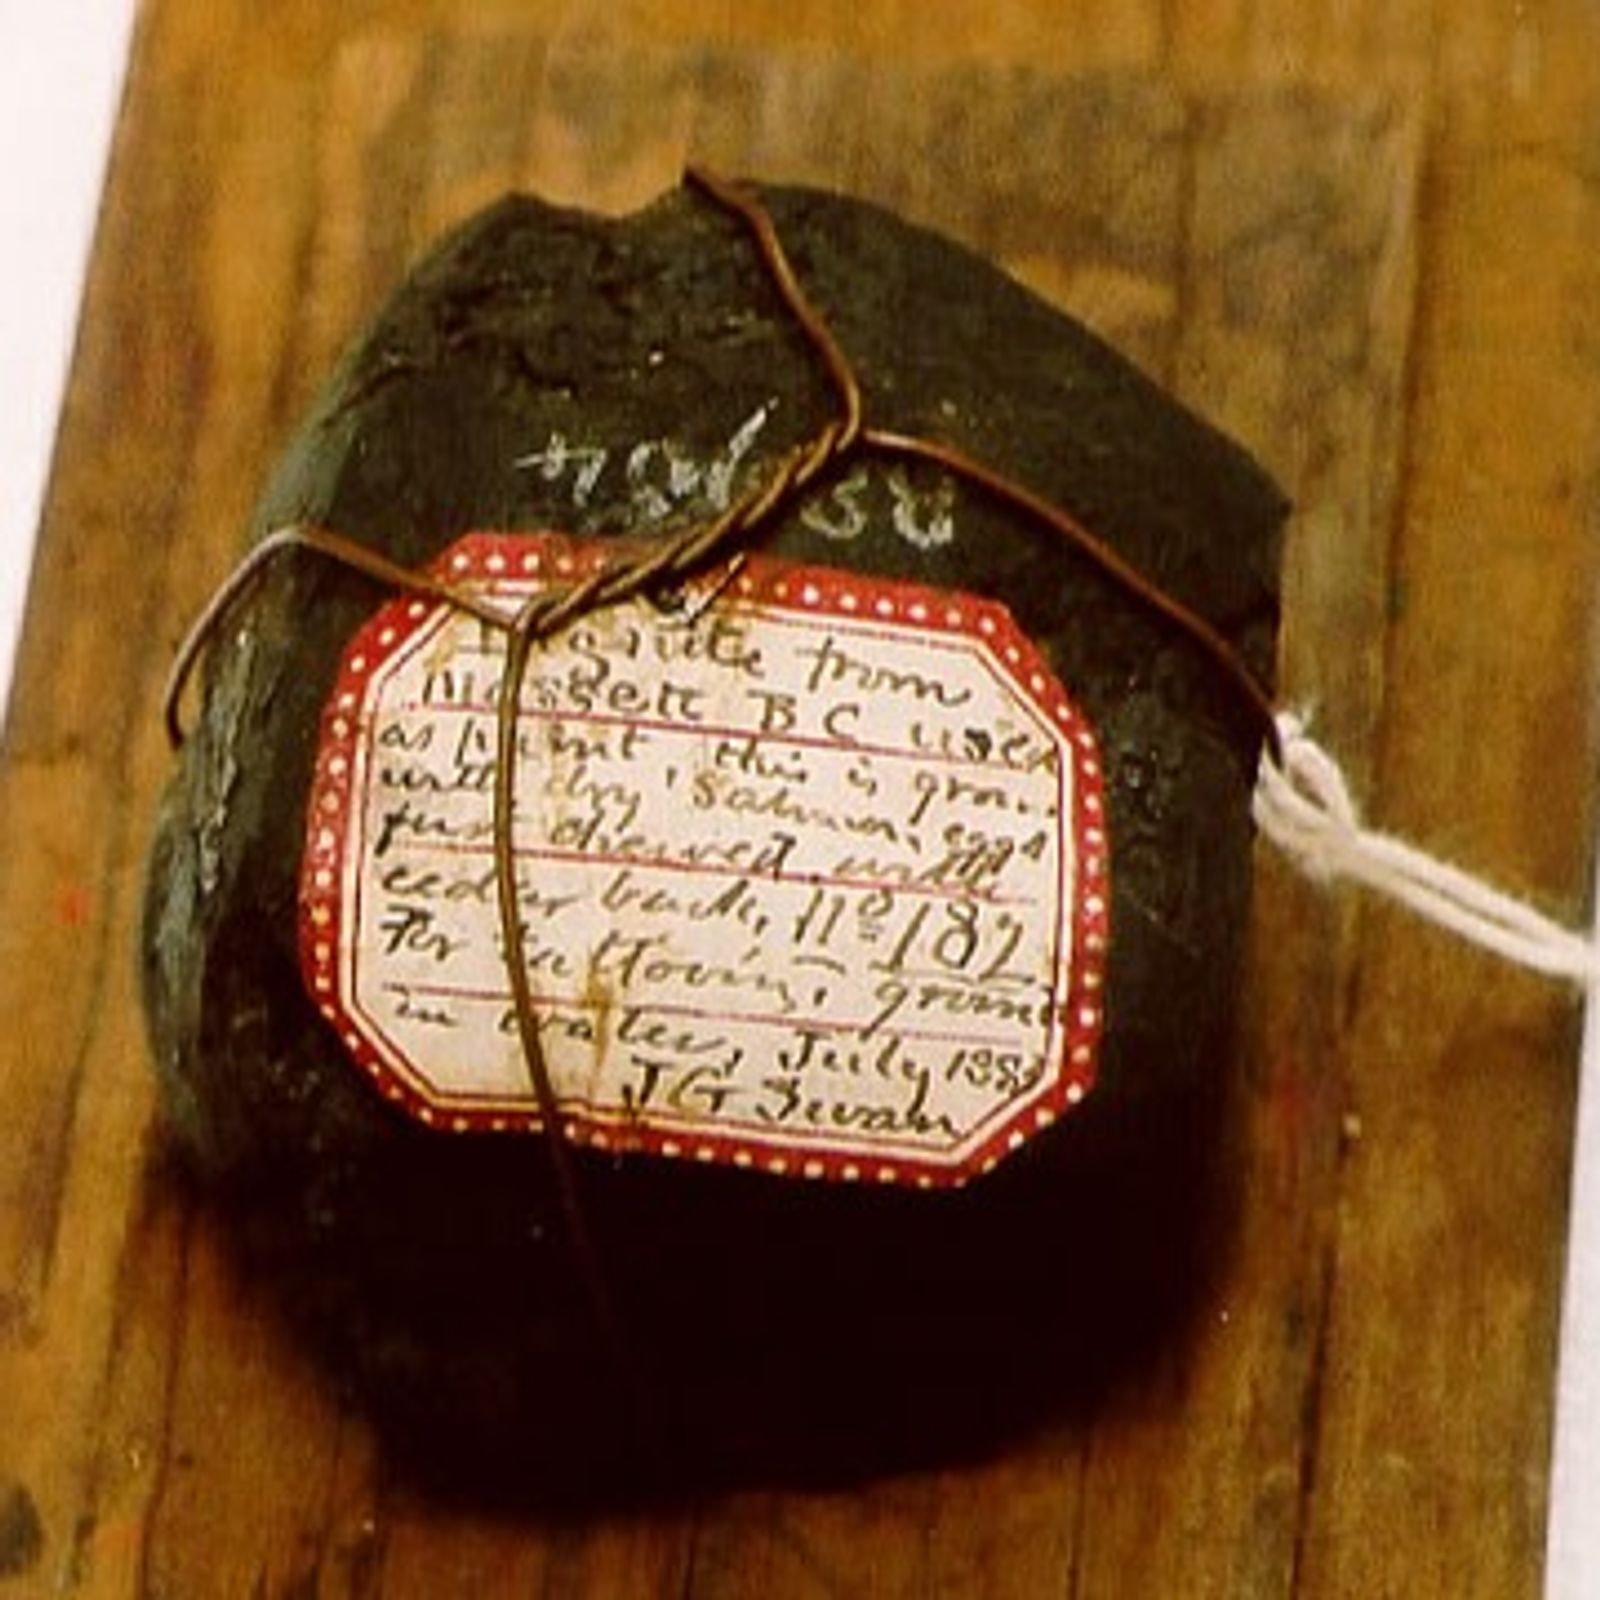 Lignite from
Massett B C used
as paint this is groun
with dry Salmon eggs
first chewed with
cedar bark, No 182
For tattooing ground
in water, July 1883
J G Swan